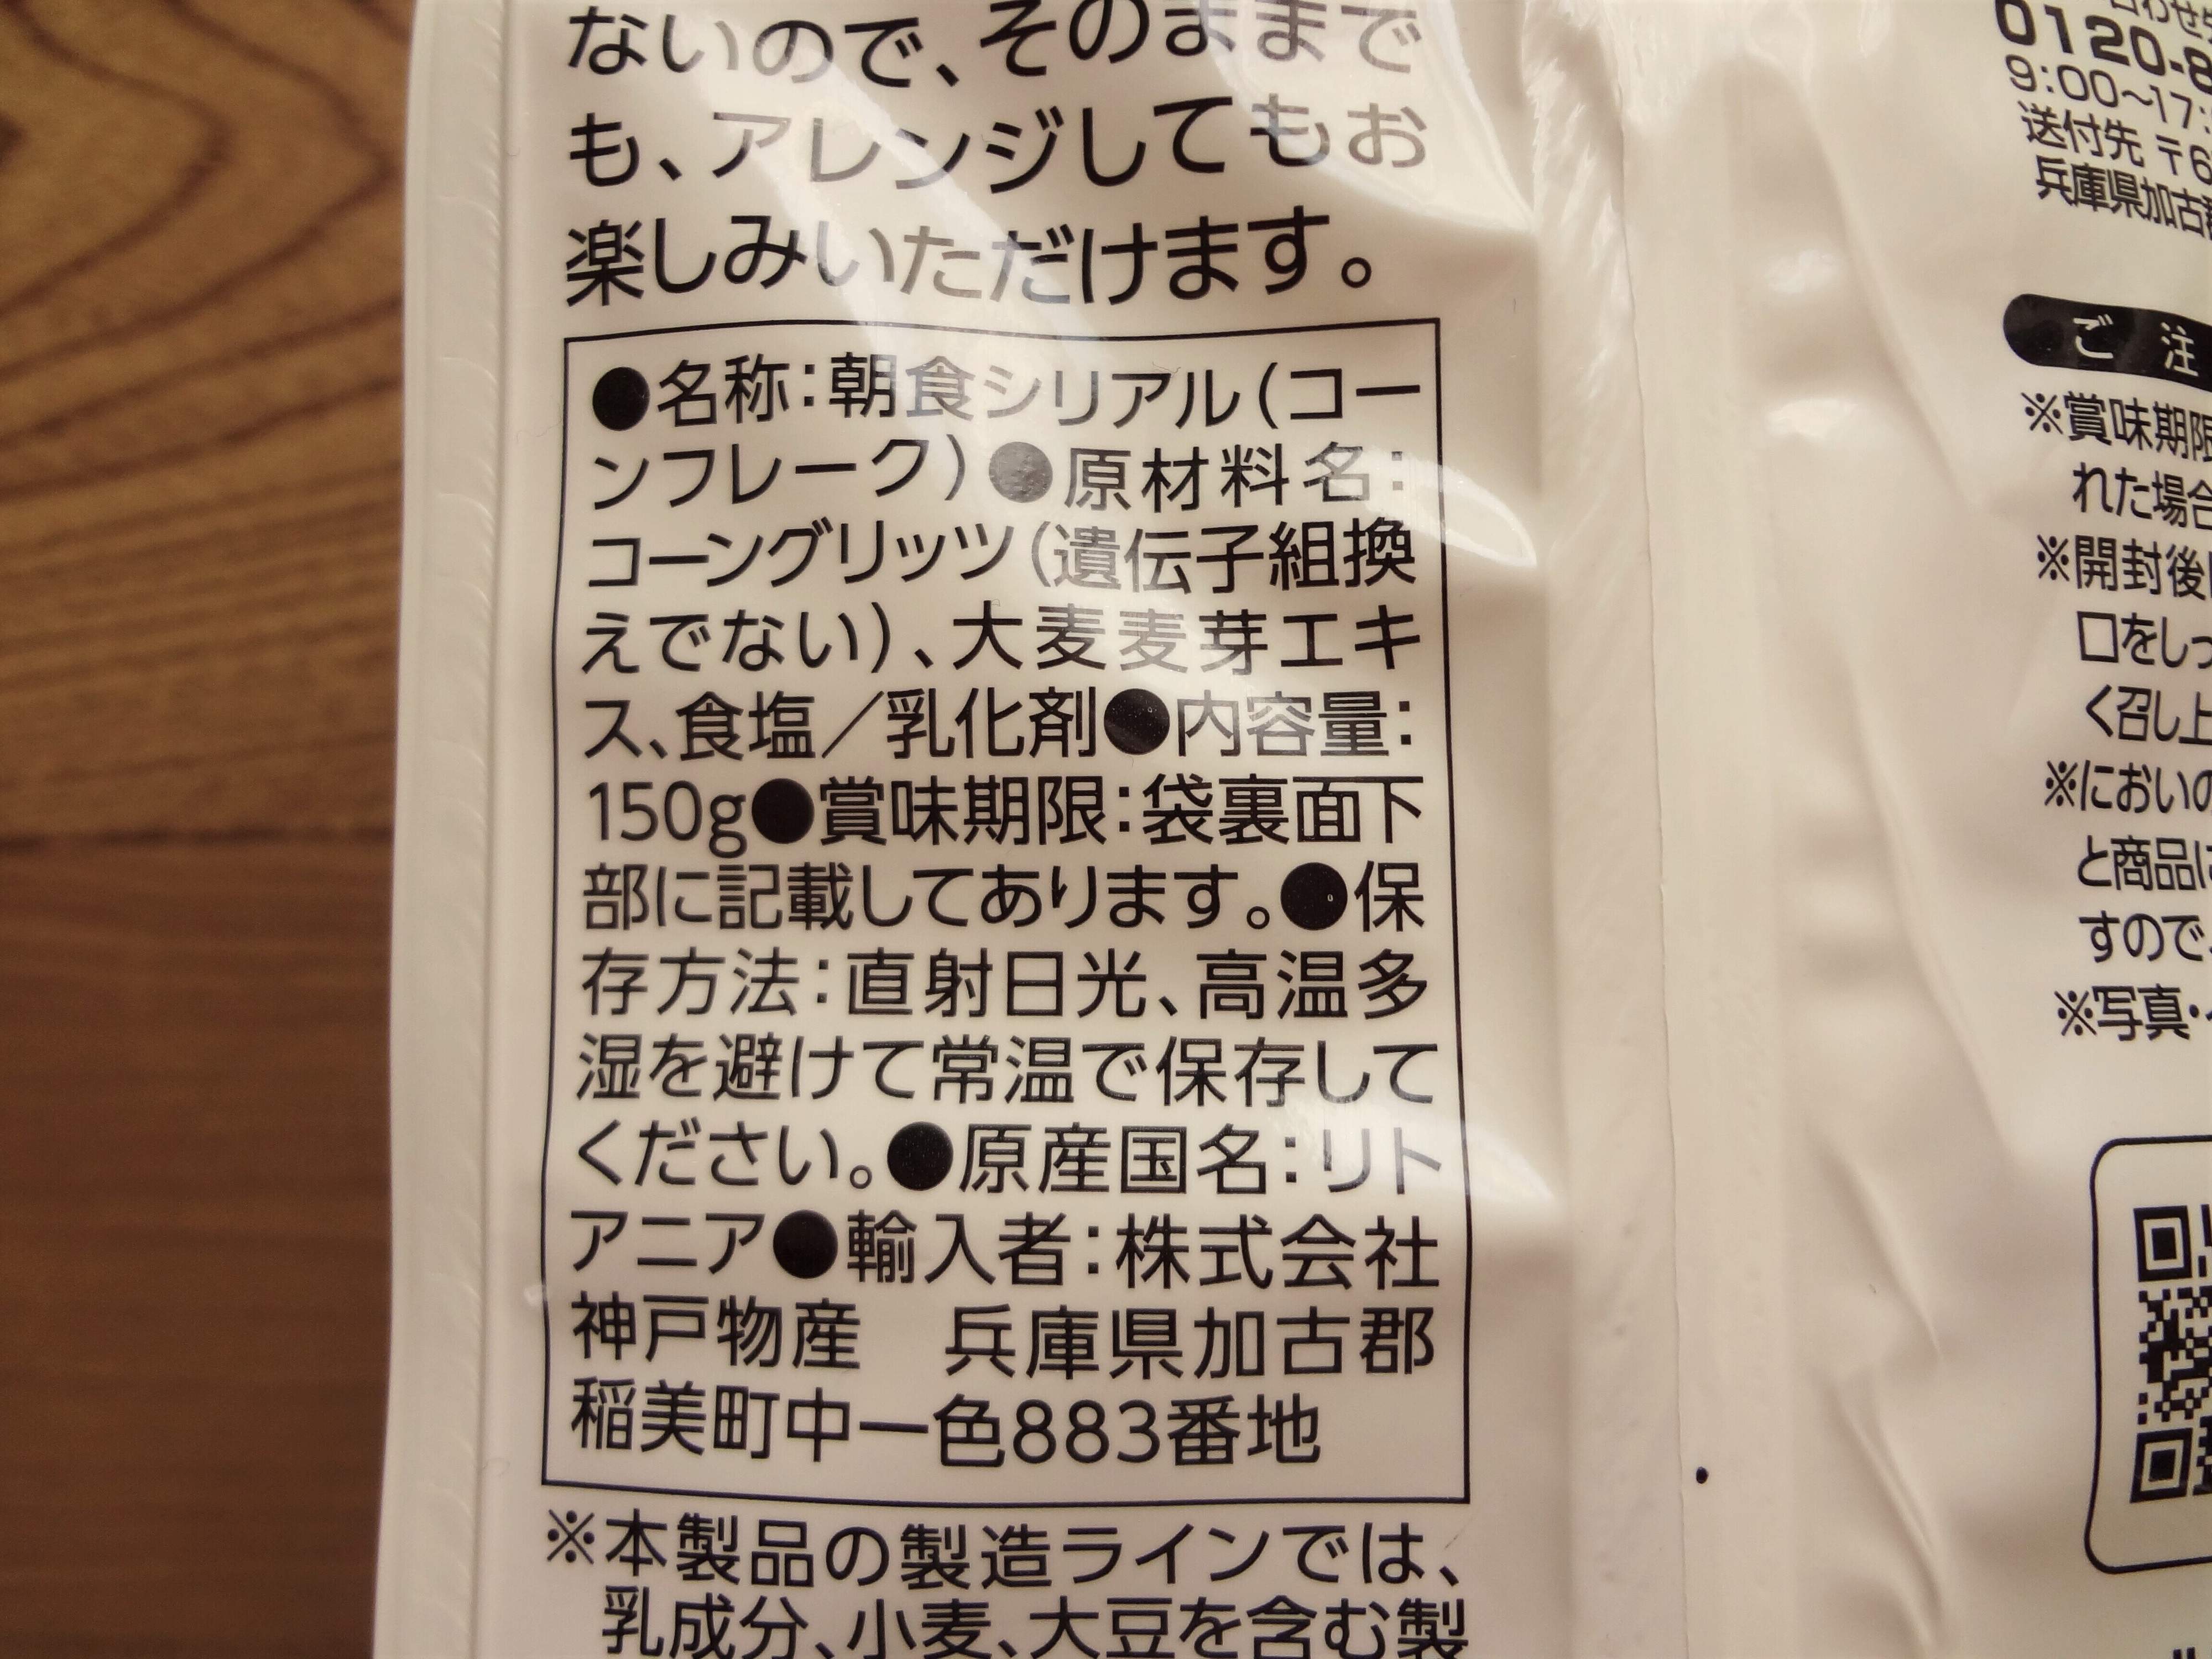 ないので、そのままで
も、アレンジしてもお
楽しみいただけます。
●名称:朝食シリアル(コー
ンフレーク)●原材料名:
コーングリッツ(遺伝子組換
えでない)、大麦麦芽エキ
ス、食塩/乳化剤●内容量:
150g●賞味期限:袋裏面下
部に記載してあります。●保
存方法:直射日光、高温多
湿を避けて常温で保存して
ください。●原産国名:リト
アニア●輸入者:株式会社
神戸物産 兵庫県加古郡
稲美町中一色883番地
※本製品の製造ラインでは、
乳成分、小麦、大豆を含む製
0120-8
9:00~17:
送付先 〒6
兵庫県加古
ご 注
※賞味期限
れた場合
※開封後
口をしっ
く召し上
※においの
と商品に
すので、
※写真・